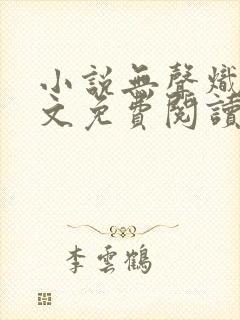 小說無聲熾
文免費閱讀
李雲鶴